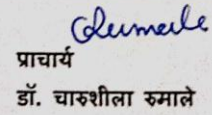 प्राचार्य
डॉ. चारुशीला रुमाले